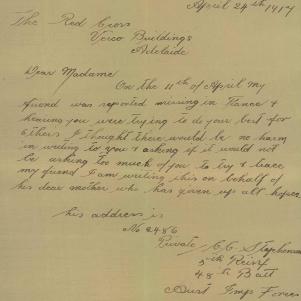 April 24th 1917
The Red Cross
Verco Buildings
Adelaide
Dear Madame
On the 11th of April my
friend was reported missing in France &
hearing you were trying to do your best for
others I thought there would be no harm
in writing to you & asking if it would not
be asking too much of you to try & trace
my friend I am writing this on behalf of
his dear mother who has given up all hopes
his address is
No 2486
Private C.C. Stephenson
5th Reinf
48th Batt
Aust Imp Forces